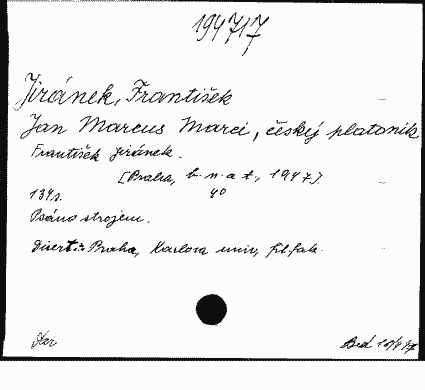 194717
Jiránek, František
Jan Marcus Marci, český platonik
František Jiránek.
[Praha, b. n. a t., 1947].
134 s. 4°
Psáno strojem.
Disert.: Praha, Karlova univ., fil. fak.
Dar